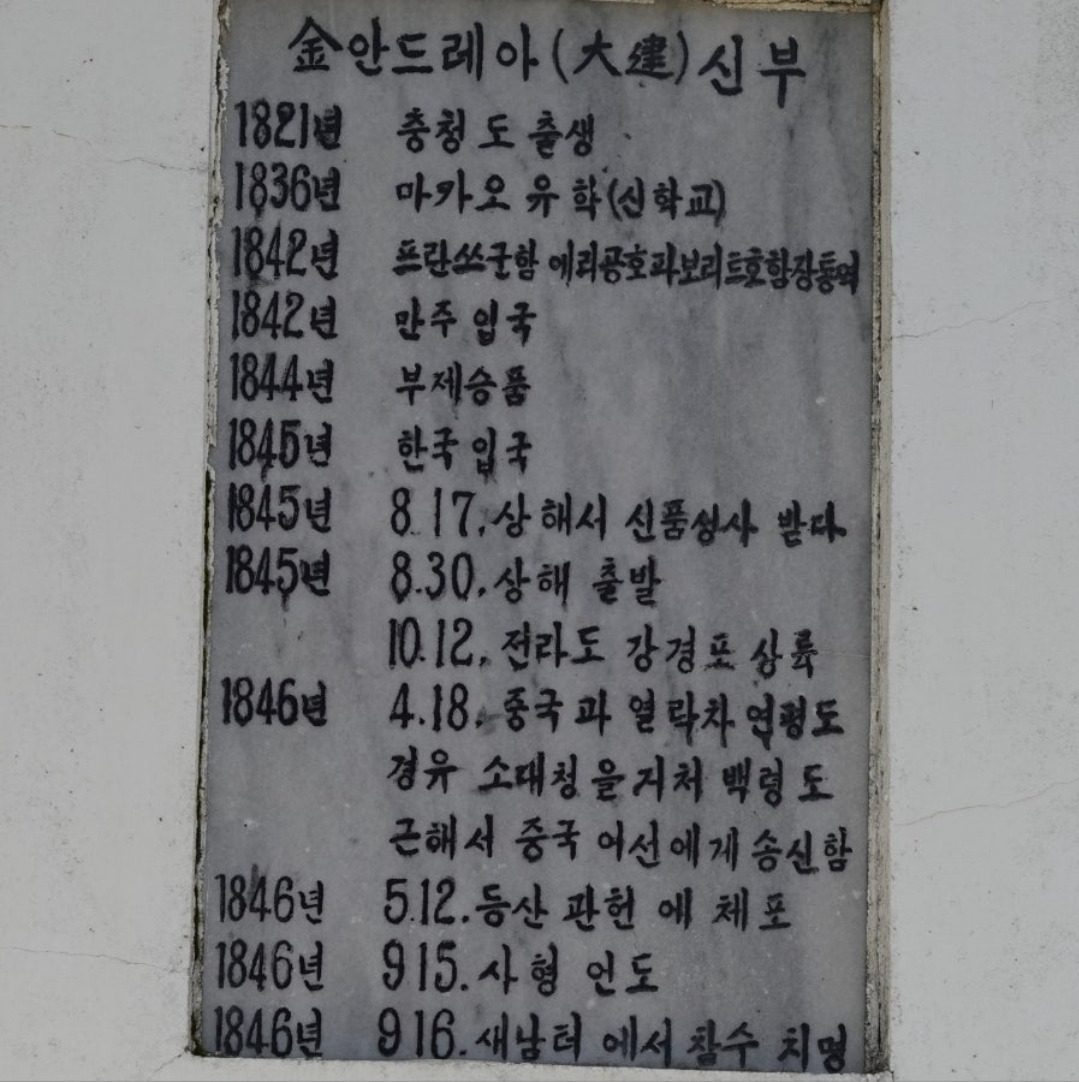 金안드레아(大建)신부
1821년 충청도 출생
1836년 마카오 유학(신학교)
1842년 프란쓰군함 에리공호과보리트호함장통역
1842년 만주 입국
1844년 부제승품
1845년 한국 입국
1845년 8.17. 상해서 신품성사 받다
1845년 8.30. 상해 출발
10.12. 전라도 강경포 상륙
1846년 4.18. 중국과 열락차 연평도
경유 소대청을 거처 백령도
근해서 중국 어선에게 송신함
1846년 5.12. 등산 관헌에 체포
1846년 9 15. 사형 언도
1846년 9 16. 새남터에서 참수 치명